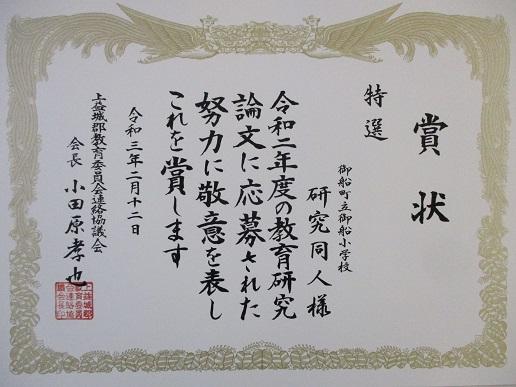 賞状
特選
御船町立御船小学校
研究同人様
令和二年度の教育研究
論文に応募された
努力に敬意を表し
これを賞します
令和三年二月十二日
上益城郡教育委員会連絡協議会
会長 小田原孝也